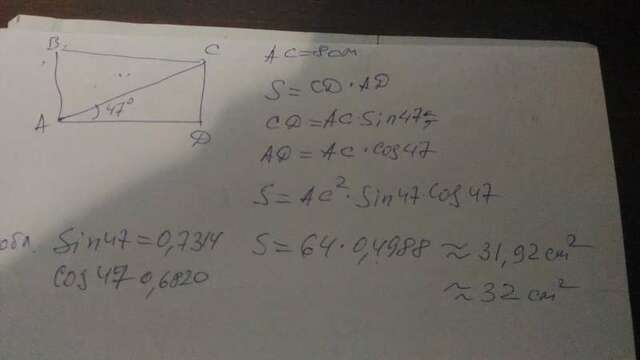 B C
A 47° D
AC = 8 см
S = CD · AD
CD = AC · Sin47
AD = AC · Cos47
S = AC² · Sin47 · Cos47
Sin47 = 0,7314
Cos47 0,6820
S = 64 · 0,4988 ≈ 31,92 см²
≈ 32 см²